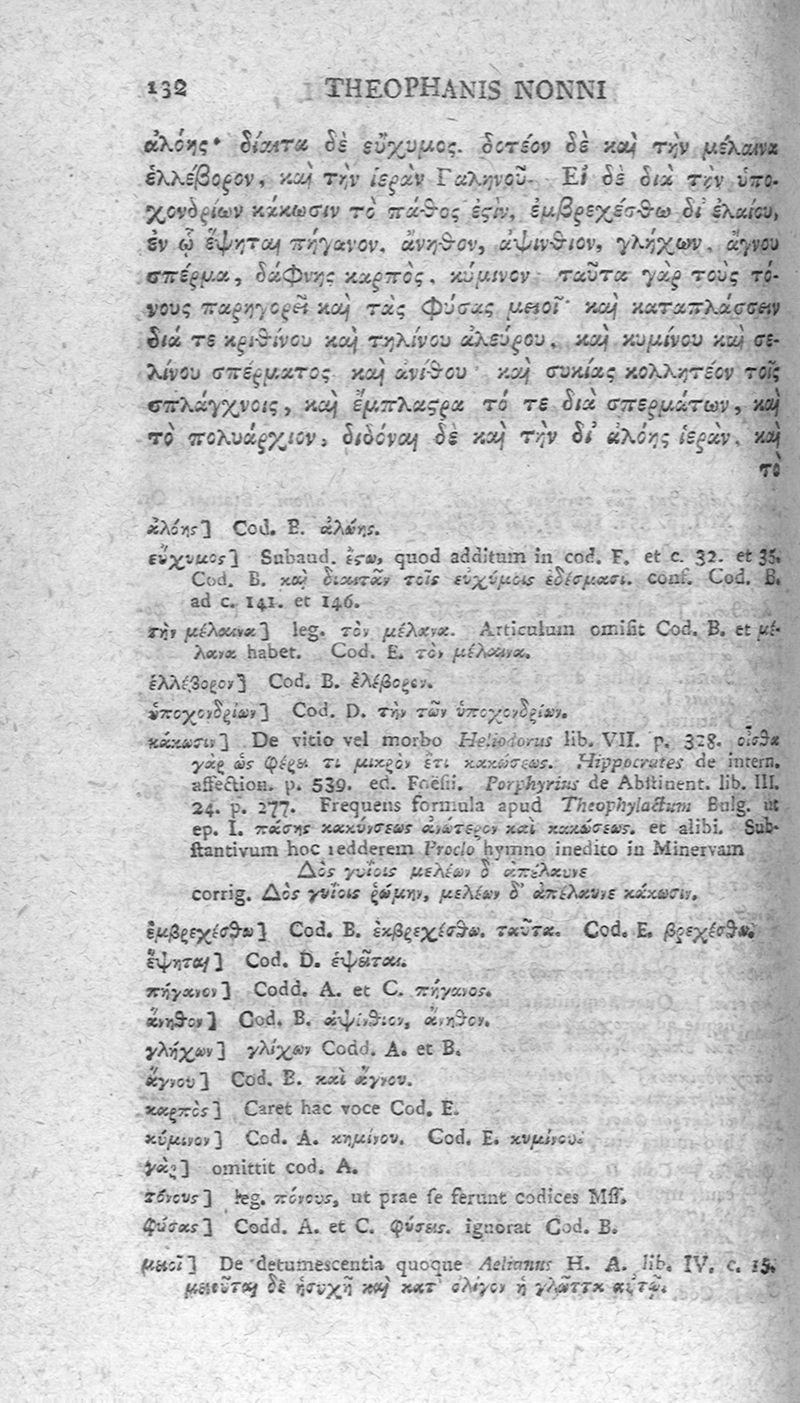 132 THEOPHANIS NONNI
ἀλόης· δίαιτα δὲ εὔχυμος. δοτέον δὲ καὶ τὴν μέλαινα
ἑλλέβορον, καὶ τὴν ἱερὰν Γαληνοῦ. Εἰ δὲ διὰ τὴν ὑπο-
χονδρίων κάκωσιν τὸ πάθος ἐςὶν, ἐμβρεχέσθω δι' ἐλαίου,
ἐν ᾧ ἕψηται πήγανον, ἄνηθον, ἀψίνθιον, γλήχων, ἄγνου
σπέρμα, δάφνης καρπὸς, κύμινον· ταῦτα γὰρ τοὺς τό-
νους παρηγορεῖ καὶ τὰς φύσας μειοῖ· καὶ καταπλάσσειν
διά τε κριθίνου καὶ τηλίνου ἀλεύρου, καὶ κυμίνου καὶ σε-
λίνου σπέρματος καὶ ἀνίθου· καὶ συκίας κολλητέον τοῖς
σπλάγχνοις, καὶ ἔμπλαςρα τό τε διὰ σπερμάτων, καὶ
τὸ πολυάρχιον, διδόναι δὲ καὶ τὴν δι' ἀλόης ἱερὰν, καὶ
τὸ
ἀλόης] Cod. B. ἀλώης.
εὔχυμος] Subaud. ἔςω, quod additum in cod. F. et c. 32. et 35.
Cod. B. καὶ διαιτᾶν τοῖς εὐχύμοις ἐδέσμασι. conf. Cod. B.
ad c. 141. et 146.
τὴν μέλαινα] leg. τὸν μέλανα. Articulum omisit Cod. B. et μέ-
λανα habet. Cod. E. τὸν μέλαινα.
ἑλλέβορον] Cod. B. ἐλέβορον.
ὑποχονδρίων] Cod. D. τὴν τῶν ὑποχονδρίων.
κάκωσιν] De vitio vel morbo Heliodorus lib. VII. p. 328. οἶσθα
γὰρ ὡς φέρει τι μικρὸν ἔτι κακώσεως. Hippocrates de intern.
affection. p. 539. ed. Foësii. Porphyrius de Abstinent. lib. III.
24. p. 277. Frequens formula apud Theophylactum Bulg. ut
ep. I. πάσης κακύνσεως ἀνώτερον καὶ κακώσεως. et alibi. Sub-
stantivum hoc redderem Proclo hymno inedito in Minervam
Δὸς γυίοις μελέων δ' ἀπέλαυνε
corrig. Δὸς γυίοις ῥώμην, μελέων δ' ἀπέλαυνε κάκωσιν.
ἐμβρεχέσθω] Cod. B. ἐκβρεχέσθω. ταῦτα. Cod. E. βρεχέσθω.
ἕψηται] Cod. D. ἑψεῖται.
πήγανον] Codd. A. et C. πήγανος.
ἄνηθον] Cod. B. ἀψίνθιον, ἄνηθον.
γλήχων] γλίχων Codd. A. et B.
ἄγνου] Cod. B. καὶ ἄγνου.
καρπὸς] Caret hac voce Cod. E.
κύμινον] Cod. A. κημίνου. Cod. E. κυμίνου.
γὰρ] omittit cod. A.
τόνους] leg. πόνους, ut prae se ferunt codices Mss.
φύσας] Codd. A. et C. φύσεις. ignorat Cod. B.
μειοῖ] De detumescentia quoque Aelianus H. A. lib. IV. c. 15.
μειοῦται δὲ ἡσυχῆ καὶ κατ' ὀλίγον ἡ γλῶττα αὐτῷ.